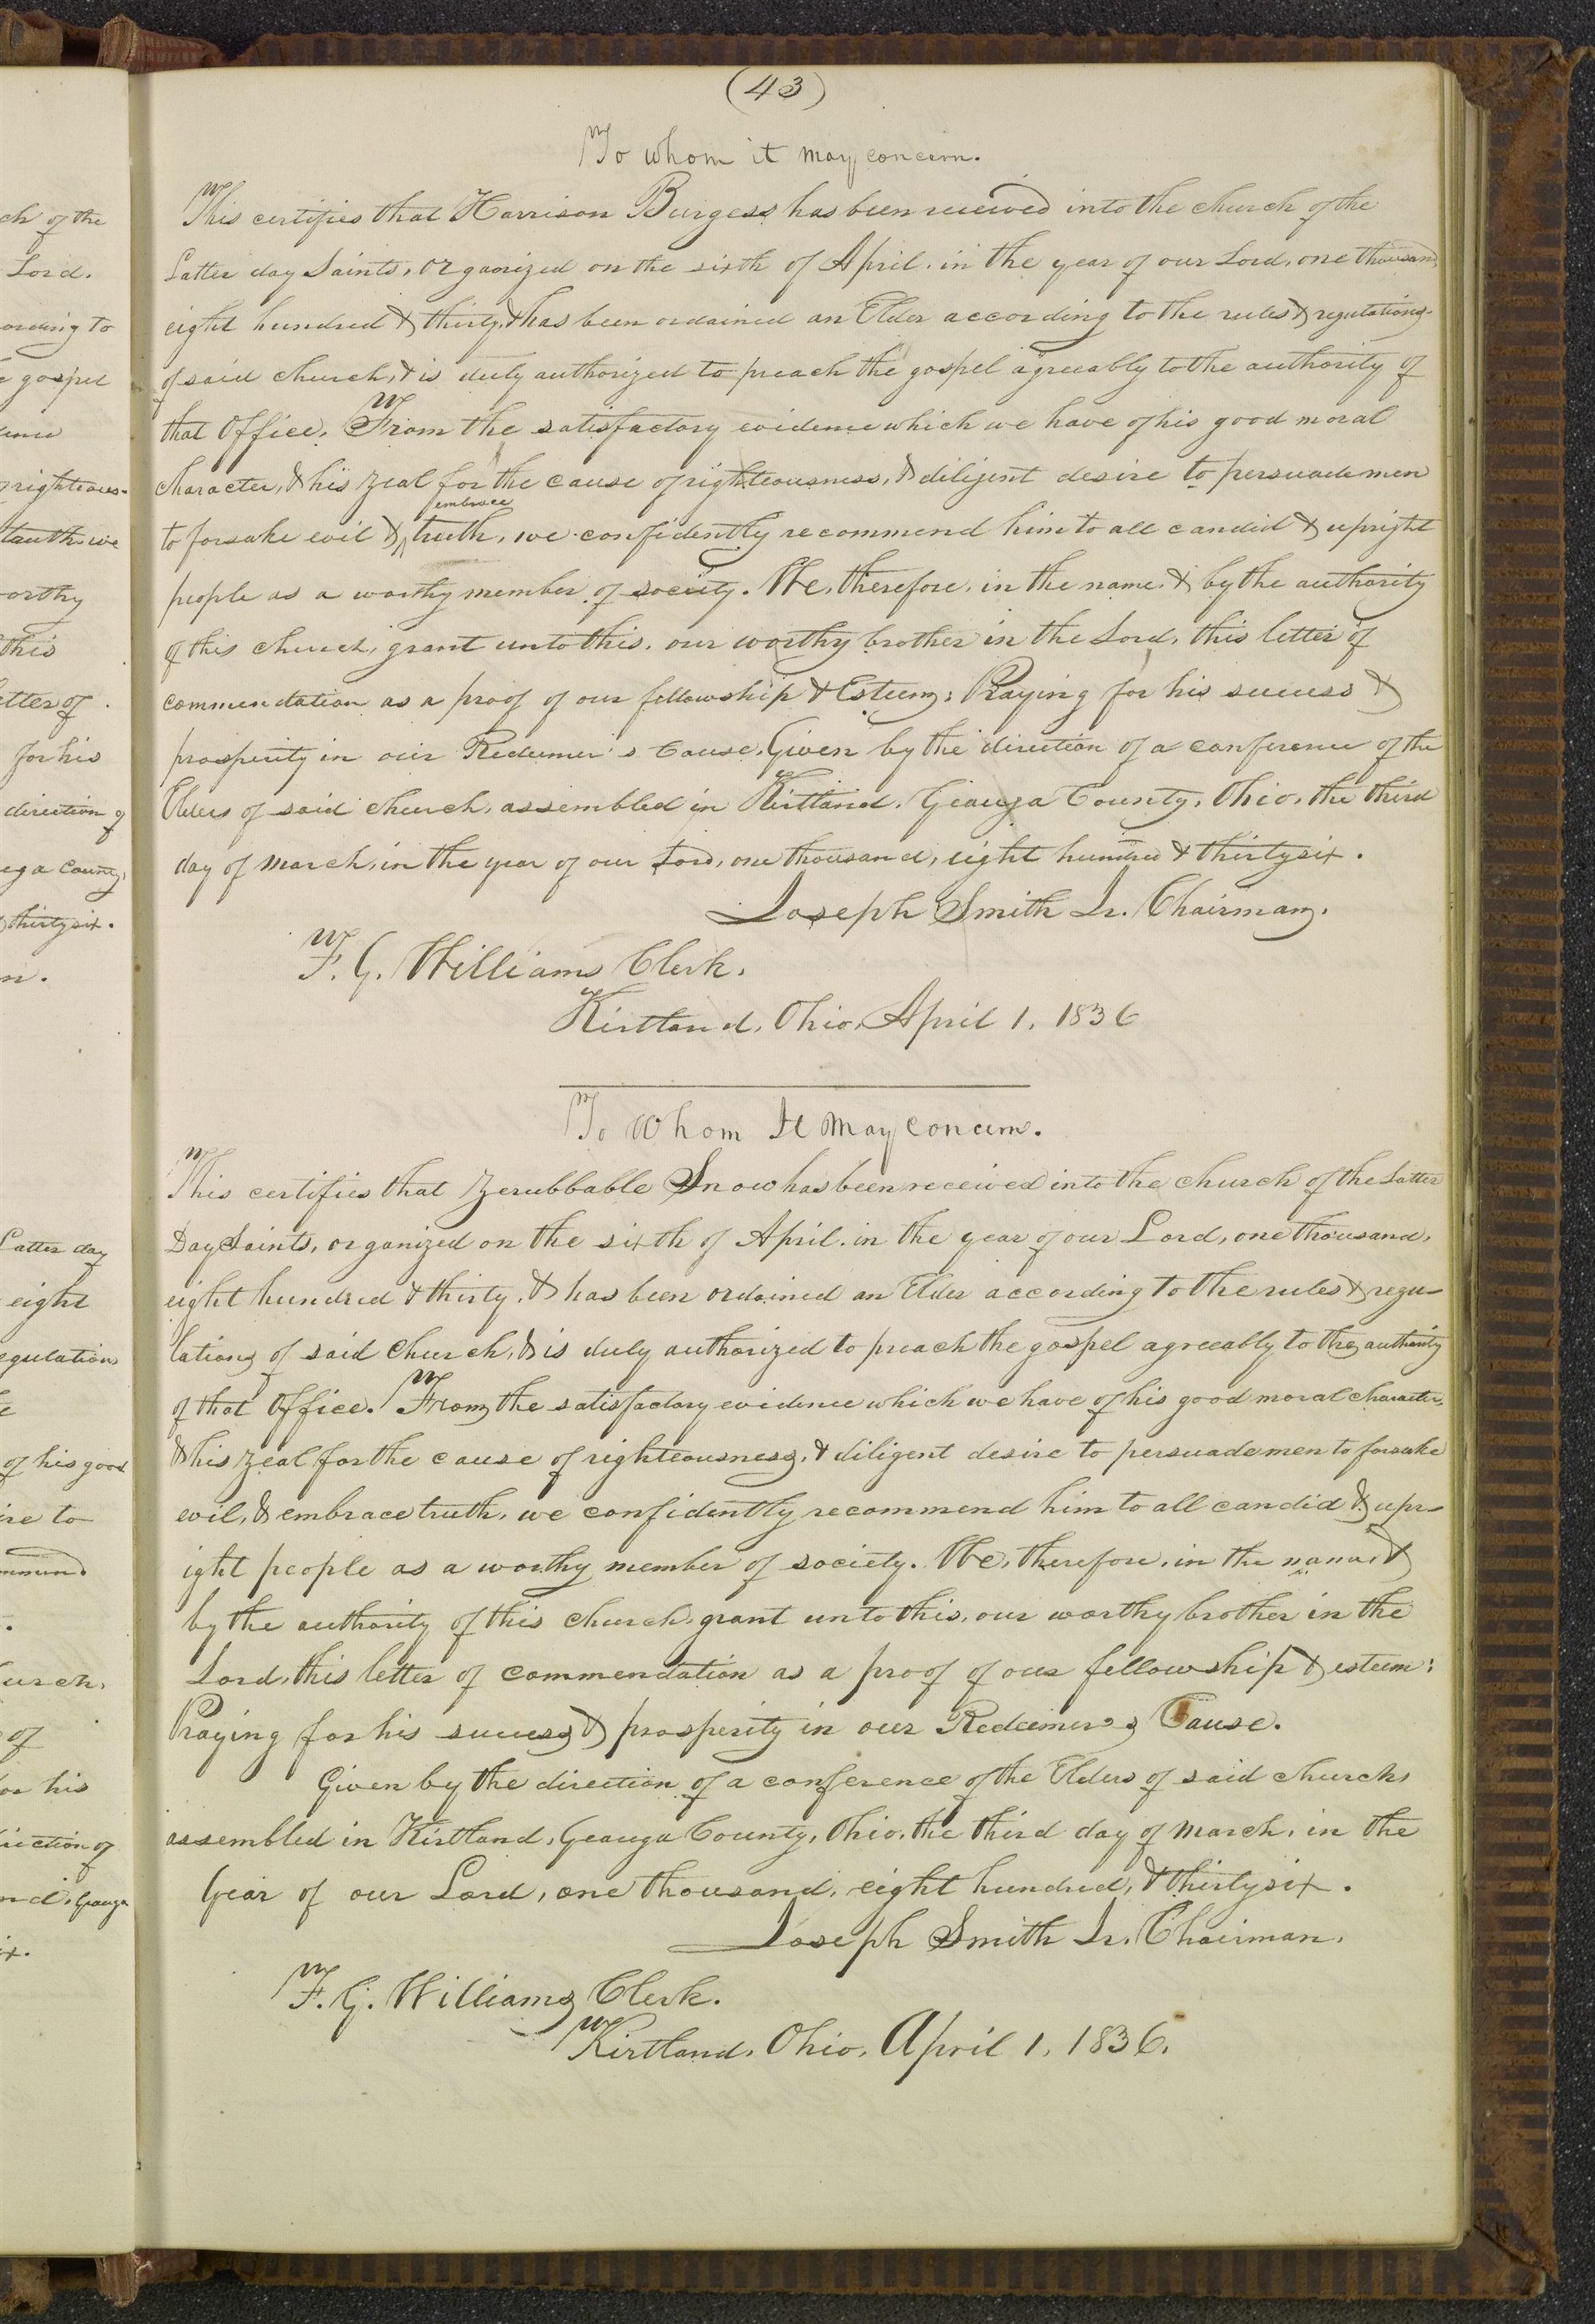 (43)
To whom it may concern.
This certifies that Harrison Burgess has been received into the church of the
Latter day Saints, organized on the sixth of April, in the year of our Lord, one thousand
eight hundred & thirty, & has been ordained an Elder according to the rules & regulations
of said church, & is duly authorized to preach the gospel agreeably to the authority of
that office. From the satisfactory evidence which we have of his good moral
character, & his zeal for the cause of righteousness, & diligent desire to persuade men
embrace
to forsake evil & truth, we confidently recommend him to all candid & upright
people as a worthy member of society. We, therefore, in the name, & by the authority
of this church, grant unto this, our worthy brother in the Lord, this letter of
commendation as a proof of our fellowship & Esteem: Praying for his success &
prosperity in our Redeemer's Cause. Given by the direction of a conference of the
Elders of said church, assembled in Kirtland, Geauga County, Ohio, the third
day of march, in the year of our Lord, one thousand, eight hundred & thirty six.
Joseph Smith Jr. Chairman.
F. G. Williams Clerk.
Kirtland, Ohio, April 1, 1836
To Whom It May Concern.
This certifies that Zerubbable Snow has been received into the church of the Latter
Day Saints, organized on the sixth of April, in the year of our Lord, one thousand,
eight hundred & thirty, & has been ordained an Elder according to the rules & regu-
lations of said Church, & is duly authorized to preach the gospel agreeably to the authority
of that Office. From the satisfactory evidence which we have of his good moral character,
& his zeal for the cause of righteousness, & diligent desire to persuade men to forsake
evil, & embrace truth, we confidently recommend him to all candid & upr-
ight people as a worthy member of society. We, therefore, in the name, &
by the authority of this church, grant unto this, our worthy brother in the
Lord, this letter of commendation as a proof of our fellowship & esteem:
Praying for his success & prosperity in our Redeemer's Cause.
Given by the direction of a conference of the Elders of said church,
assembled in Kirtland, Geauga County, Ohio, the third day of march, in the
Year of our Lord, one thousand, eight hundred, & thirty six.
Joseph Smith Jr. Chairman.
F. G. Williams Clerk.
Kirtland, Ohio, April 1, 1836.